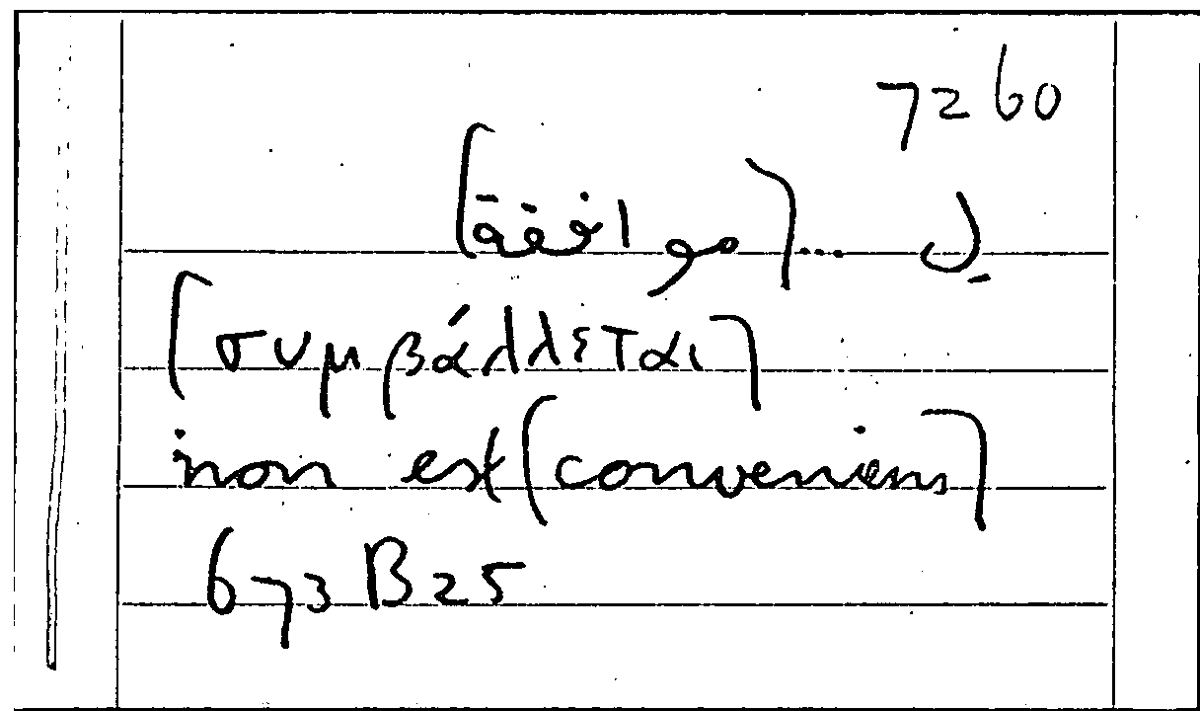 7260
لِ ... [موافقة]
[συμβάλλεται]
non est [conveniens]
673B25